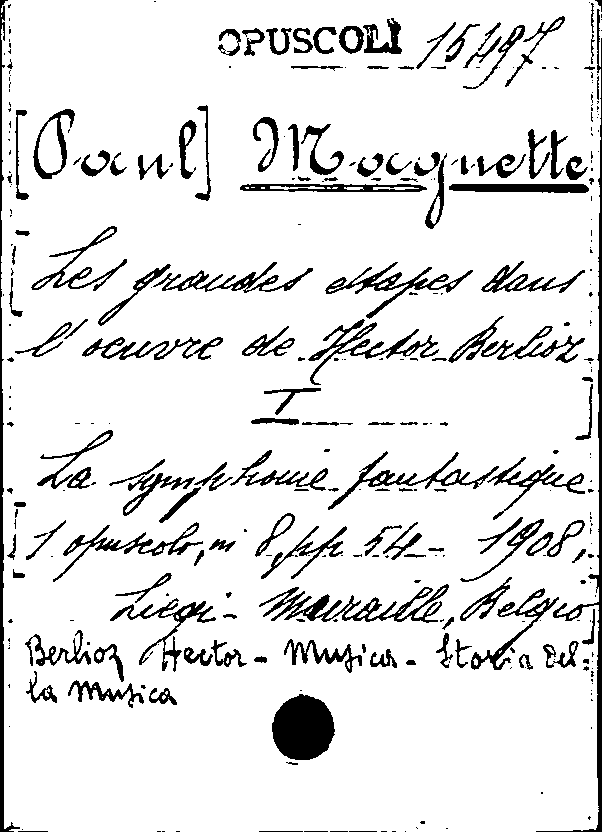 OPUSCOLI 15497
[Paul] Magnette
[Les grandes etapes dans
l'oeuvre de Hector Berlioz
I]
La symphonie fantastique
[1 opuscolo, in 8, pp 54 - 1908,
Liegi - Muraille, Belgio]
Berlioz Hector - Musica - Storia del=
la Musica